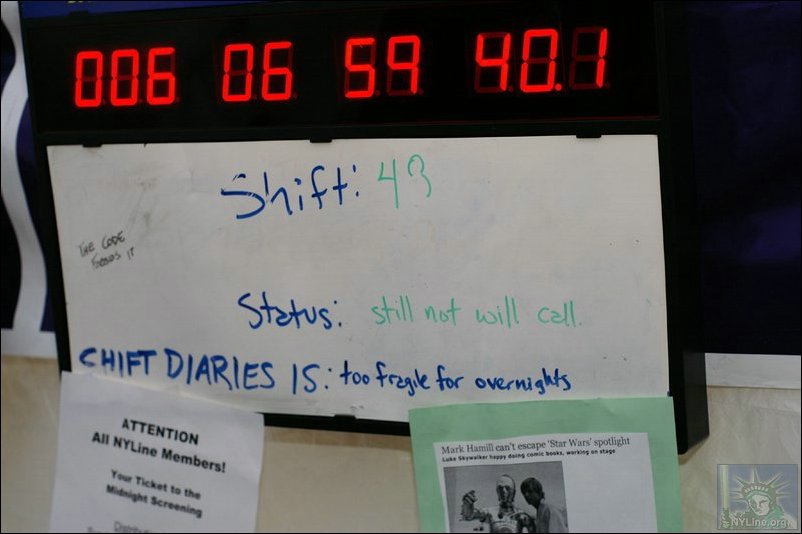 006 06 59 40.1
Shift: 43
THE CODE
FORBIDS IT
Status: still not will call.
SHIFT DIARIES IS: too fragile for overnights
ATTENTION
All NYLine Members!
Your Ticket to the
Midnight Screening
Mark Hamill can't escape 'Star Wars' spotlight
Luke Skywalker happy doing comic books, working on stage
NYLine.org